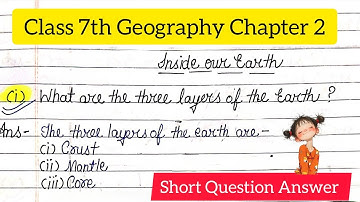 Class 7th Geography Chapter 2
Inside our Earth
(i) What are the three layers of the Earth ?
Ans- The three layers of the earth are-
(i) Crust
(ii) Mantle
(iii) Core
Short Question Answer